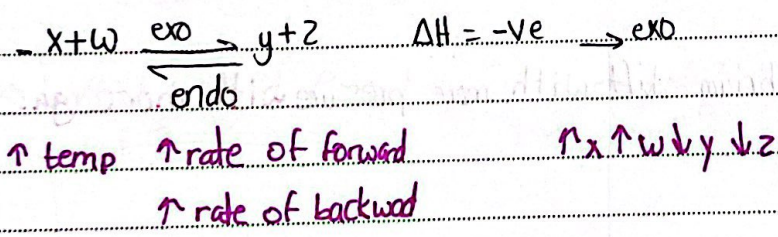 - x+w exo ⇌ endo y+z ΔH = -ve → exo
↑ temp ↑ rate of forward ↑x ↑w ↓y ↓z
↑ rate of backwod